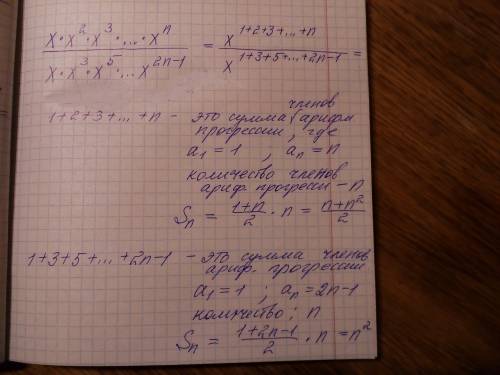 x·x²·x³·...·xⁿ / x·x³·x⁵·...x²ⁿ⁻¹ = x¹⁺²⁺³⁺···⁺ⁿ / x¹⁺³⁺⁵⁺···⁺²ⁿ⁻¹ =
1+2+3+...+n - это сумма членов арифм
прогрессии, где
a₁ = 1 ; aₙ = n
количество членов
ариф. прогресси - n
Sₙ = (1+n)/2 · n = (n+n²)/2
1+3+5+...+2n-1 - это сумма членов
ариф. прогрессии
a₁ = 1 ; aₙ = 2n-1
количество: n
Sₙ = (1+2n-1)/2 · n = n²